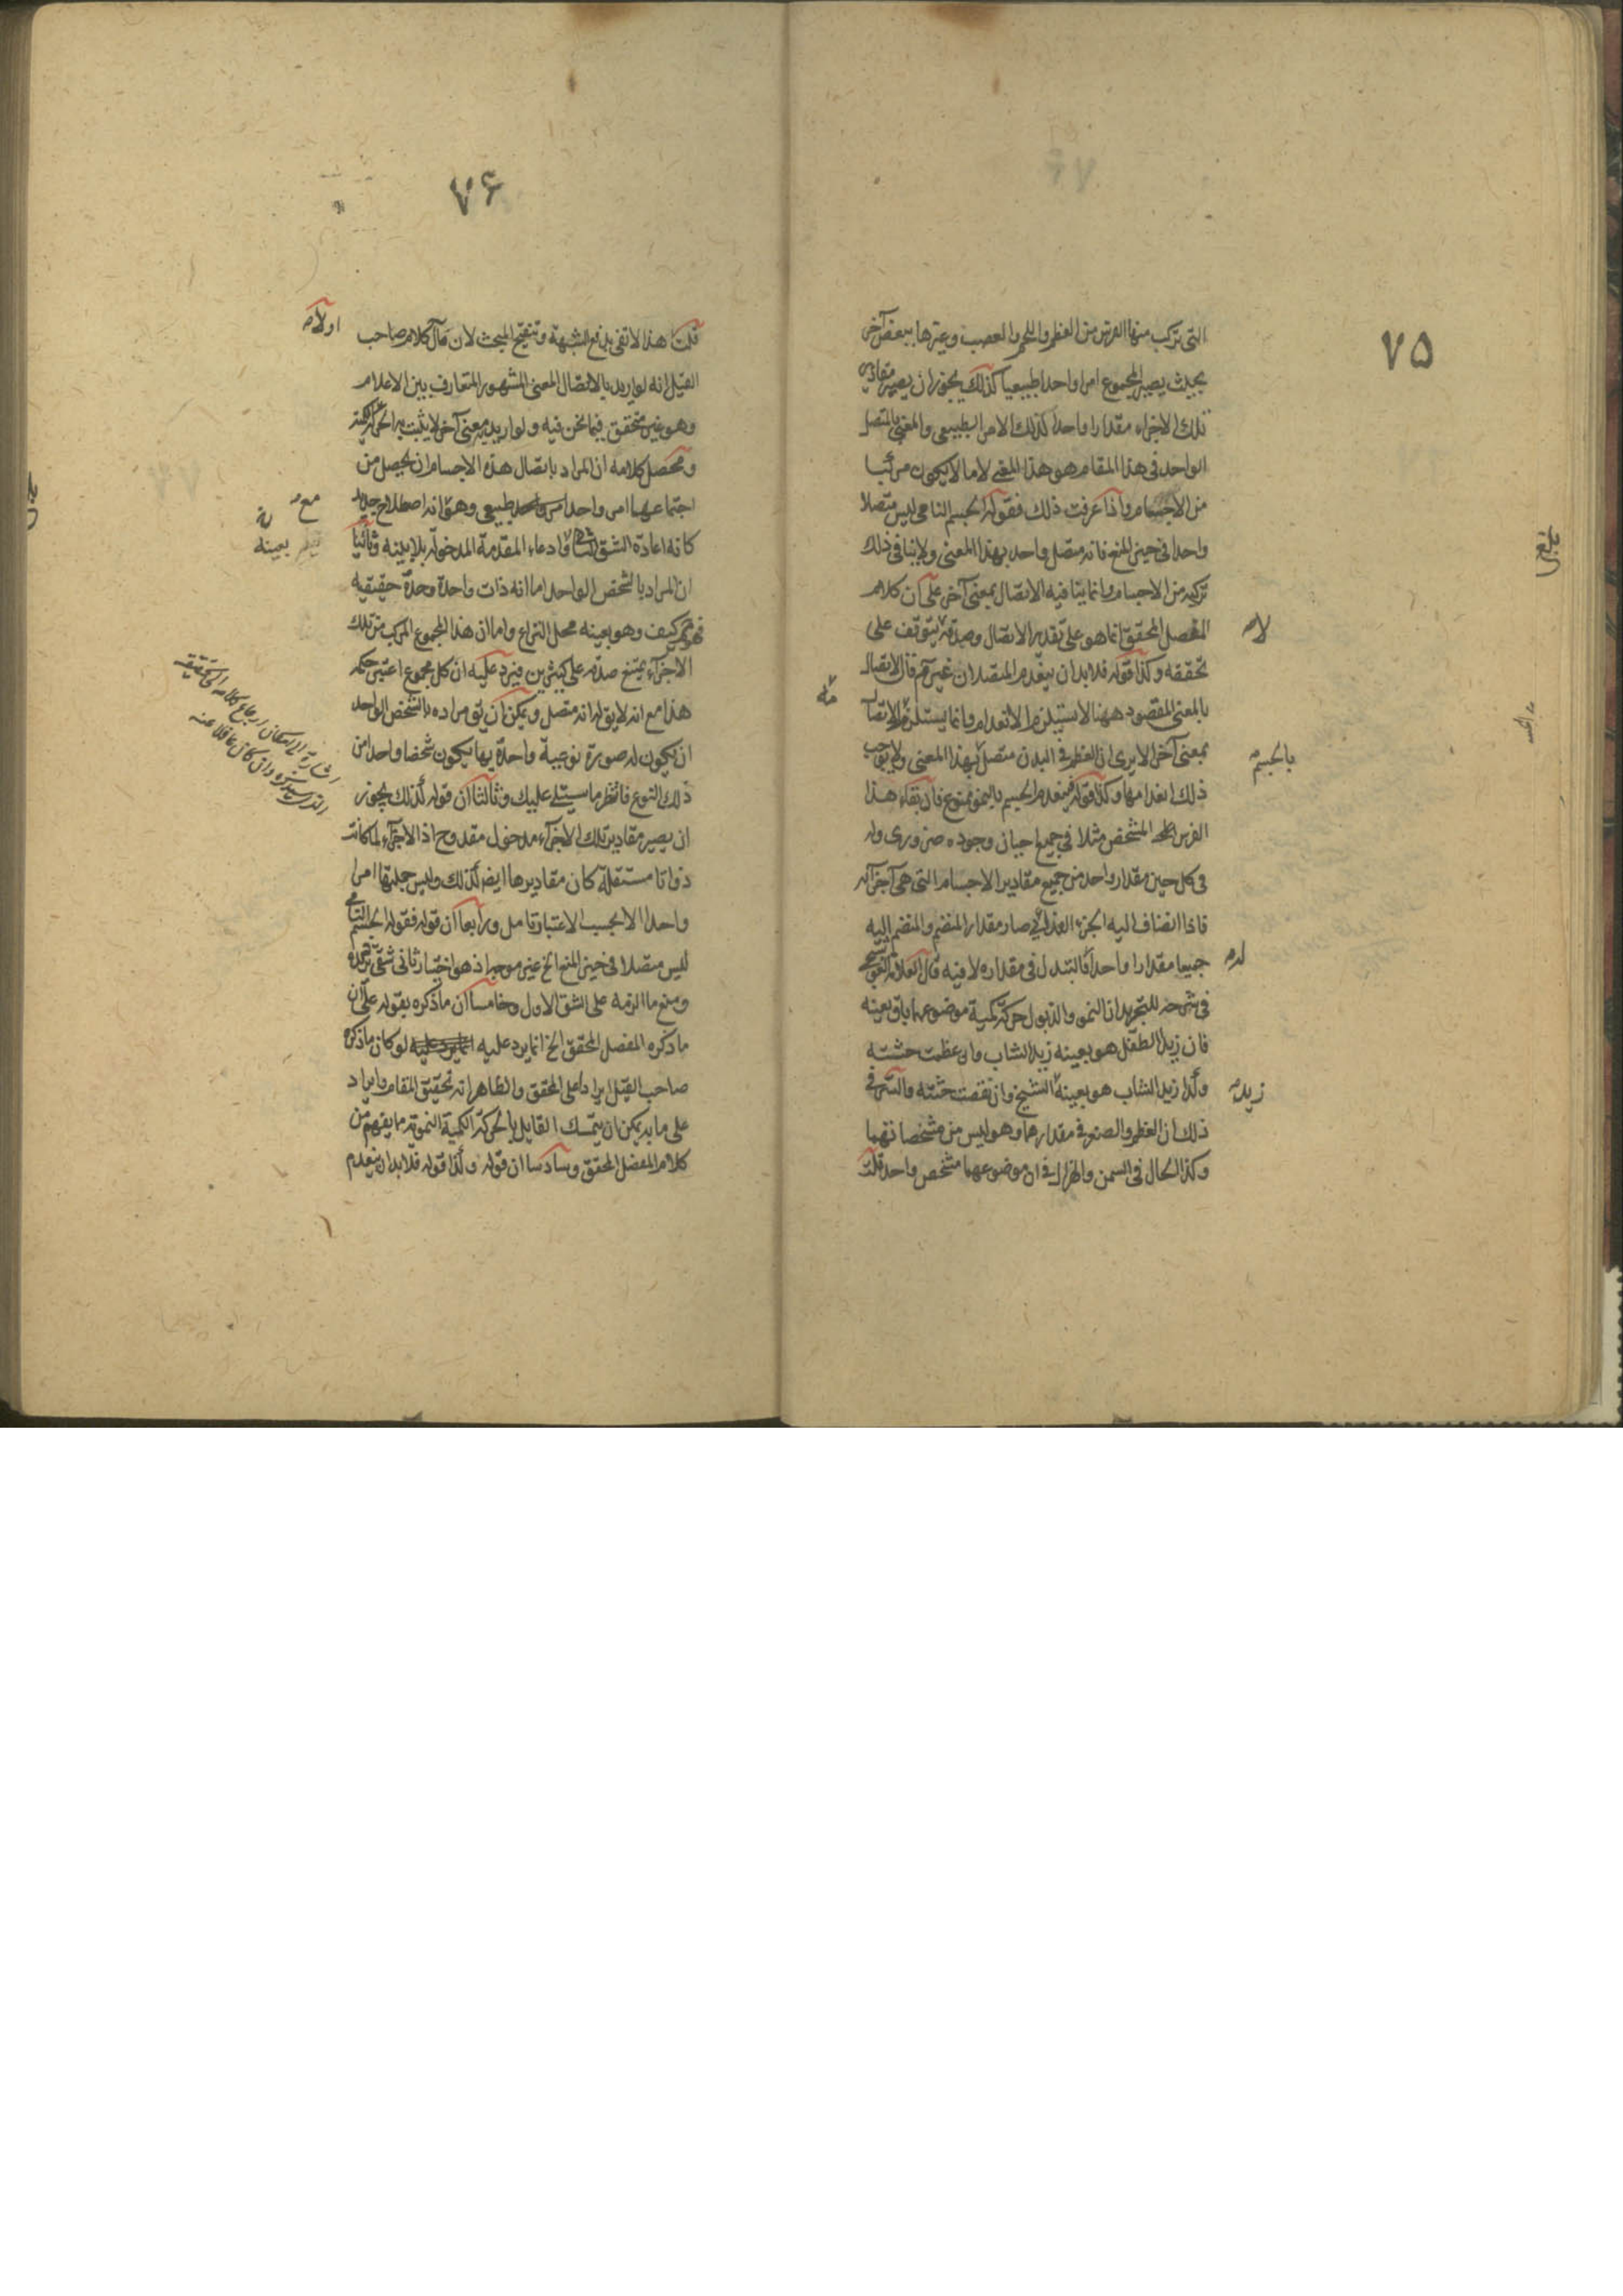 ٧٥
التى تركب منها الفرس من العظم واللحم والعصب وغيرها ببعض آخر
بحيث يصير المجموع امرا واحدا طبيعيا كذلك يجوز ان يصير مقادير
تلك الاجزاء مقدارا واحدا كذلك الامر الطبيعى والمعنى بالمتصل
الواحد فى هذا المقام هو هذا المعنى لا ما لا يكون مركبا
من الاجسام واذا عرفت ذلك فقوله الجسم النامى ليس متصلا
واحدا فى حيز المنع فانه متصل واحد بهذا المعنى ولا ينافى ذلك
تركبه من الاجسام وانما ينافيه الاتصال بمعنى آخر على ان كلام
المفصل المحقق انما هو على تقدير الاتصال وصدقه يتوقف على
لا
تحققه وكذا قوله فلا بد ان ينعدم المتصلان غير تم فان الاتصال
بالمعنى المقصود ههنا لا يستلزم الانعدام وانما يستلزم الاتصال
بمعنى آخر الا يرى ان العظم فى البدن متصل بهذا المعنى ولا يوجب
بالجسم
ذلك انعدامها وكذا قوله فينعدم الجسم بالنمو ممنوع فان بقاء هذا
الفرس المتشخص مثلا فى جميع احيان وجوده ضرورى وله
فى كل حين مقدار واحد من جميع مقادير الاجسام التى هى اجزائه
فاذا انضاف اليه الجزء الغذائى صار مقدار المنضم والمنضم اليه
جميعا مقدارا واحدا فالتبدل فى مقداره لا فيه قال العلامة القوشجى
له
فى شرحه للتجريد ان النمو والذبول حركة كمية موضوعهما باق بعينه
فان زيد الطفل هو بعينه زيد الشاب وان عظمت جثته
وكذا زيد الشاب هو بعينه الشيخ وان نقصت جثته والسر فى
زيد
ذلك ان العظم والصغر فى مقدارهما وهو ليس من مشخصاتهما
وكذا الحال فى السمن والهزال فى ان موضوعهما متشخص واحد قلت
٧۶
قلت هذا لا تفى بدفع الشبهة وتنقيح المبحث لان مآل كلام صاحب
اولا
القيل انه لو اريد بالاتصال المعنى المشهور المتعارف بين الاعلام
وهو غير متحقق فيما نحن فيه ولو اريد به معنى آخر لا يثبت به الحركة الكمية
ومحصل كلامه ان المراد باتصال هذه الاجسام ان يحصل من
اجتماعها امر واحد طبيعى وهو مع انه اصطلاح جديد
مع
كانه اعادة الشق الثانى وادعاء المقدمة المدخولة بلا بينة وثانيا
بعينه
ان المراد بالشخص الواحد اما انه ذات واحدة وحدة حقيقيه
فهو تم كيف وهو بعينه محل النزاع واما ان هذا المجموع المركب من تلك
الاجزاء يمتنع صدقه على كثيرين فيرد عليه ان كل مجموع اعتبر حكمه
هذا مع انه لا يق له انه متصل ويمكن ان يق مراده بالشخص الواحد
ان يكون له صورة نوعية واحدة بها يكون شخصا واحدا من
ذلك النوع فانتظر ما سيتلى عليك وثالثا ان قوله كذلك يجوز
ان يصير مقادير تلك الاجزاء مدخول مقدوح اذ الاجزاء لما كانت
ذواتا مستقلة كان مقاديرها ايضا كذلك وليس جملتها امرا
واحدا الا بحسب الاعتبار تامل ورابعا ان قوله فقوله الجسم النامى
ليس متصلا فى حيز المنع الخ غير موجه اذ هو اختيار ثانى شقى ترديده
ومنع ما الزمه على الشق الاول وخامسا ان ما ذكره بقوله على ان
ما ذكره المفصل المحقق الخ انما يرد عليه لو كان ما ذكره
صاحب القيل ايرادا على المحقق والظاهر انه تحقيق المقام وايراد
على ما به يمكن ان يتمسك القايل بالحركة الكمية النموية ما يفهم من
كلام المفصل المحقق وسادسا ان قوله وكذا قوله فلا بد ان ينعدم
اشارة الى امكان ارجاع كلامه الى تحقيقه
الذى سيذكره وان كان غافلا عنه